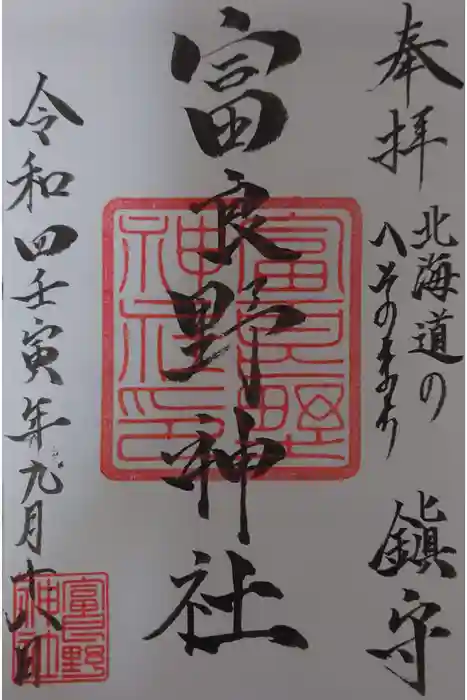 奉拝
北海道の
へそのまち
鎮守
富良野神社
富良野
神社印
令和四壬寅年九月十八日
富良野
神社